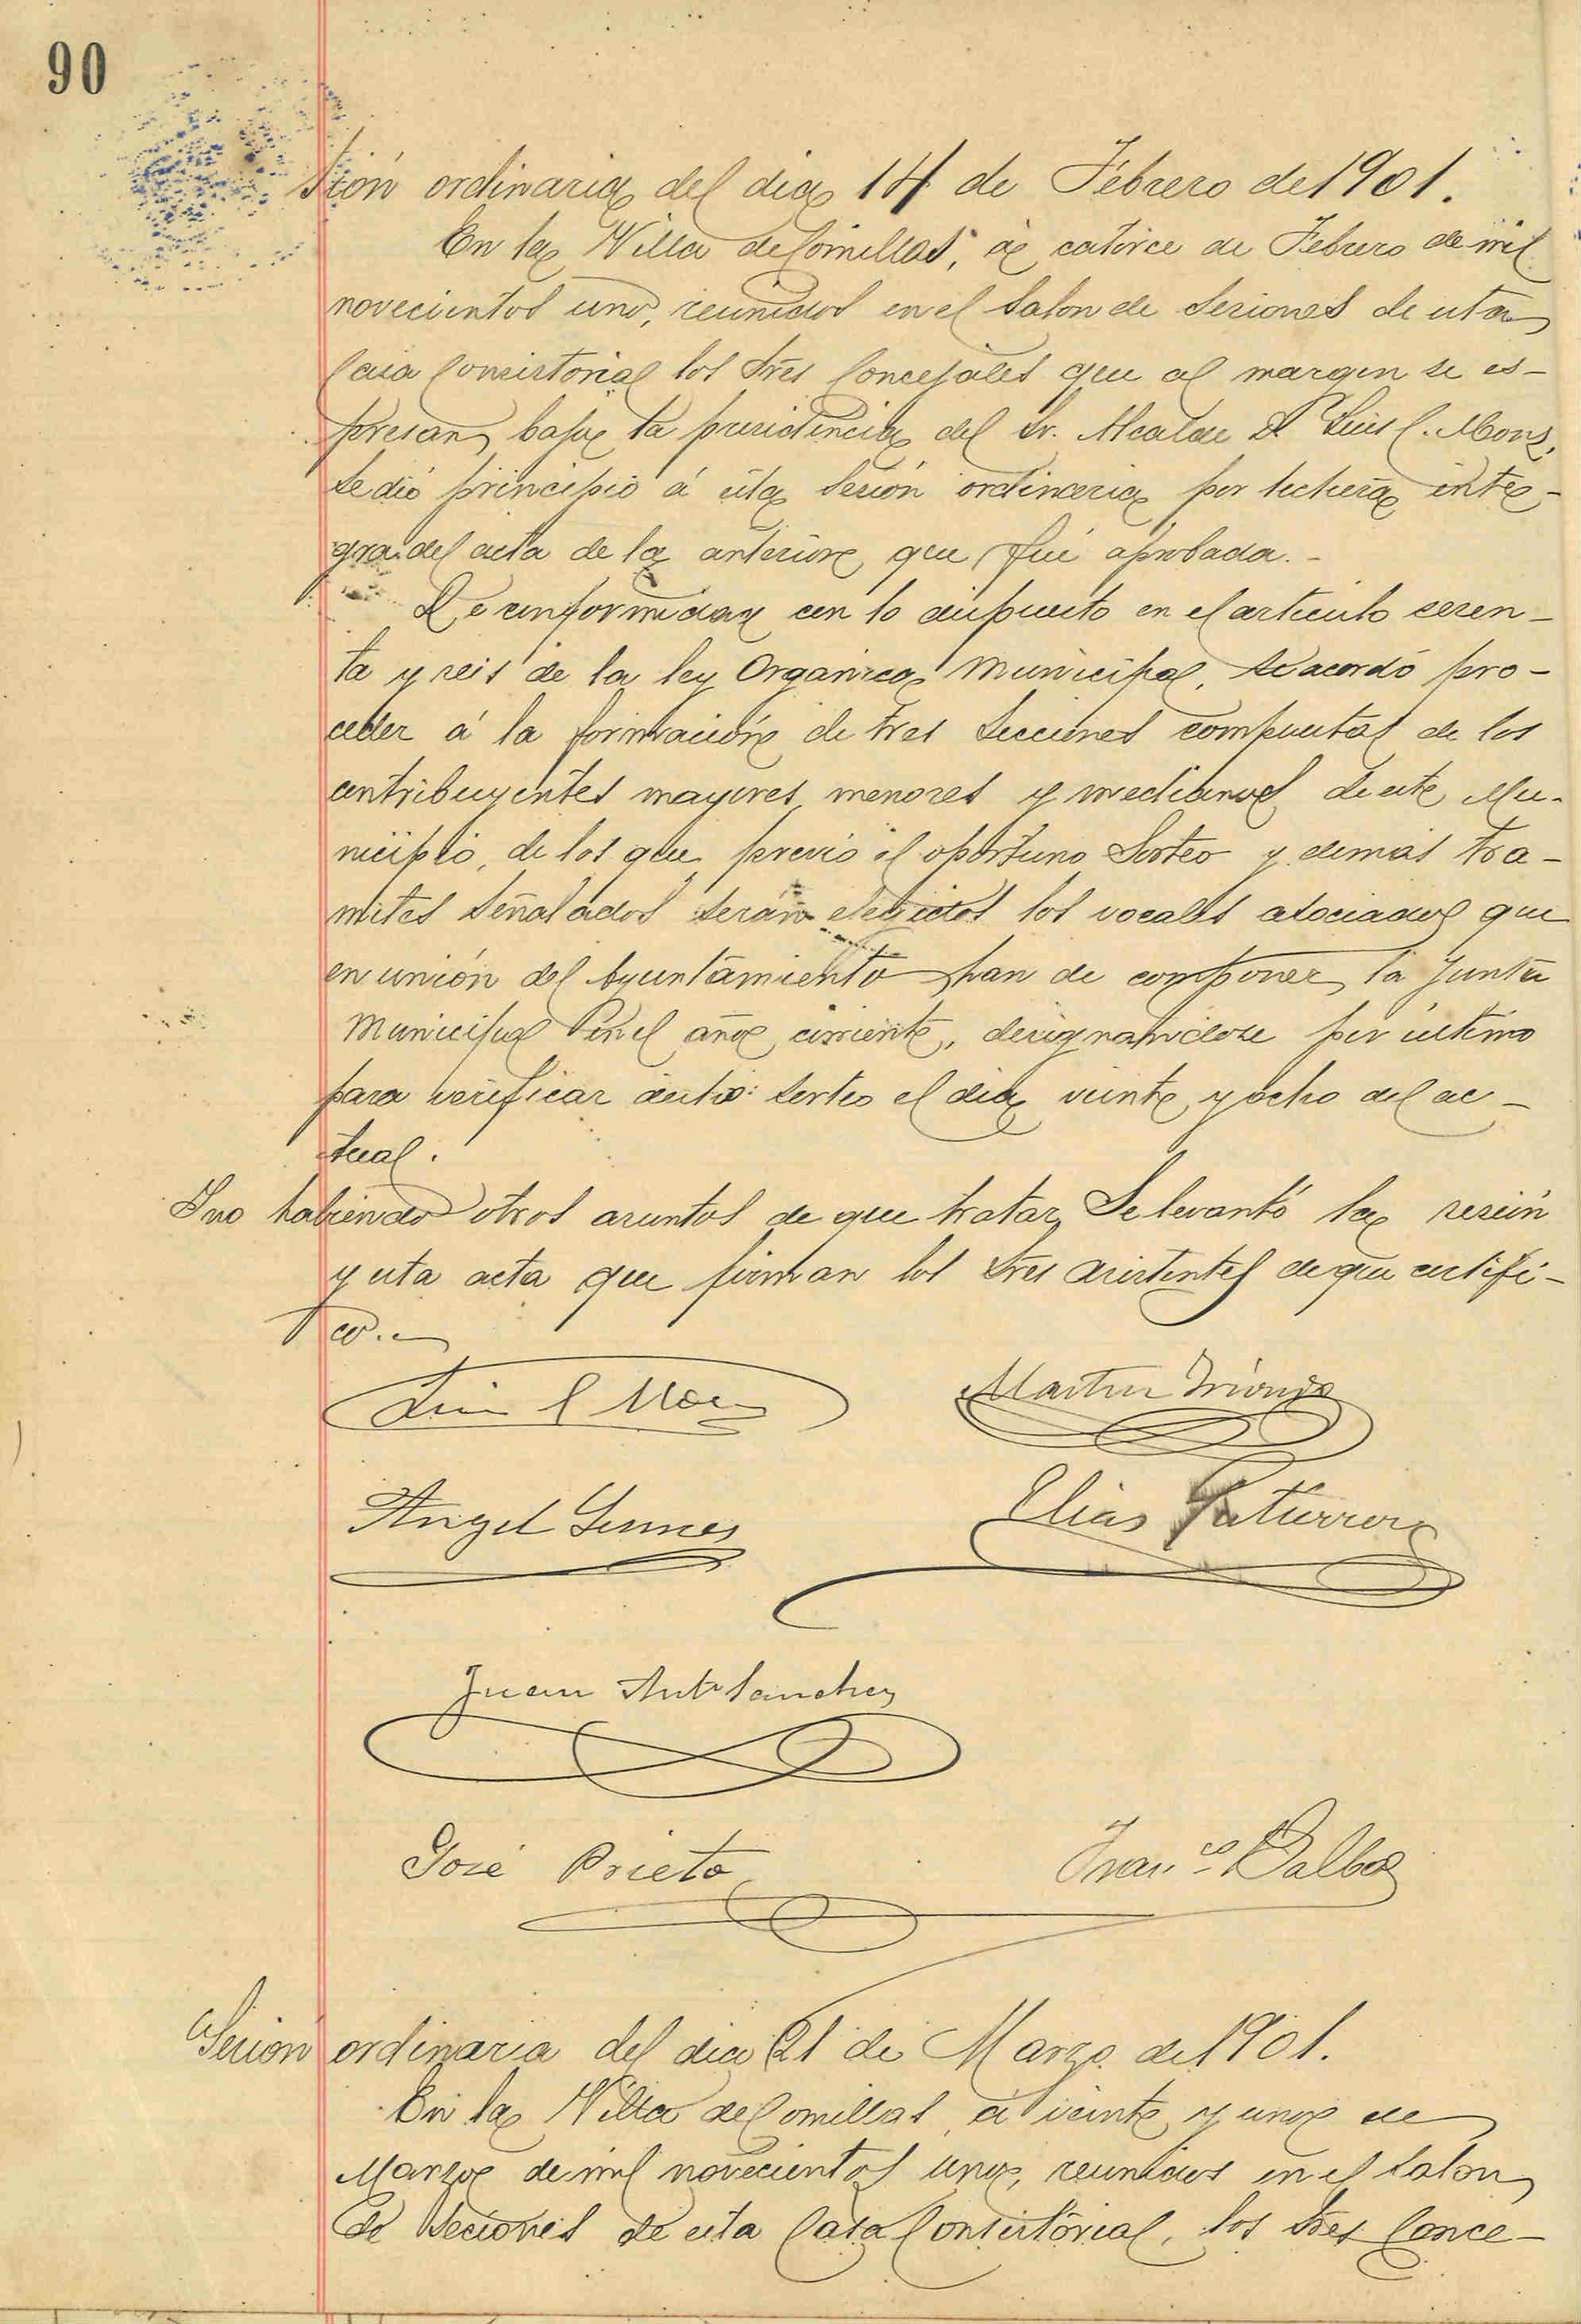 90
sión ordinaria del dia 14 de Febrero de 1901.
En la Villa de Comillas, á catorce de Febrero de mil
novecientos uno, reunidos en el Salon de Sesiones de esta
Casa Consistorial los Sres Concejales que al margen se es-
presan, bajo la presidencia del Sr. Alcalde D. Luis C. Mons,
se dió principio á esta Sesión ordinaria por lectura inte-
gra del acta de la anterior, que fué aprobada.-
De conformidad con lo dispuesto en el articulo sesen-
ta y seis de la ley Organica Municipal, Se acordó pro-
ceder á la formación de tres Secciones compuestas de los
contribuyentes mayores menores y medianos de este Mu-
nicipio, de los que previo el oportuno Sorteo y demás tra-
mites Señalados serán elegidos los vocales asociados que
en unión del Ayuntamiento han de componer la Junta
Municipal en el año corriente, designandose por último
para verificar dicho sorteo el dia veinte y ocho del ac-
tual.
Y no habiendo otros asuntos de que tratar, Se levantó la sesión
y esta acta que firman los Sres asistentes de que certifi-
co.-
Luis C Mons
Martin
Angel
Elias Gutierrez
Juan Anto Sanchez
José Prieto
Franco Balbas
Sesión ordinaria del dia 21 de Marzo de 1901.
En la Villa de Comillas, á veinte y uno de
Marzo de mil novecientos uno, reunidos en el Salon
de Sesiones de esta Casa Consistorial, los Sres Conce-